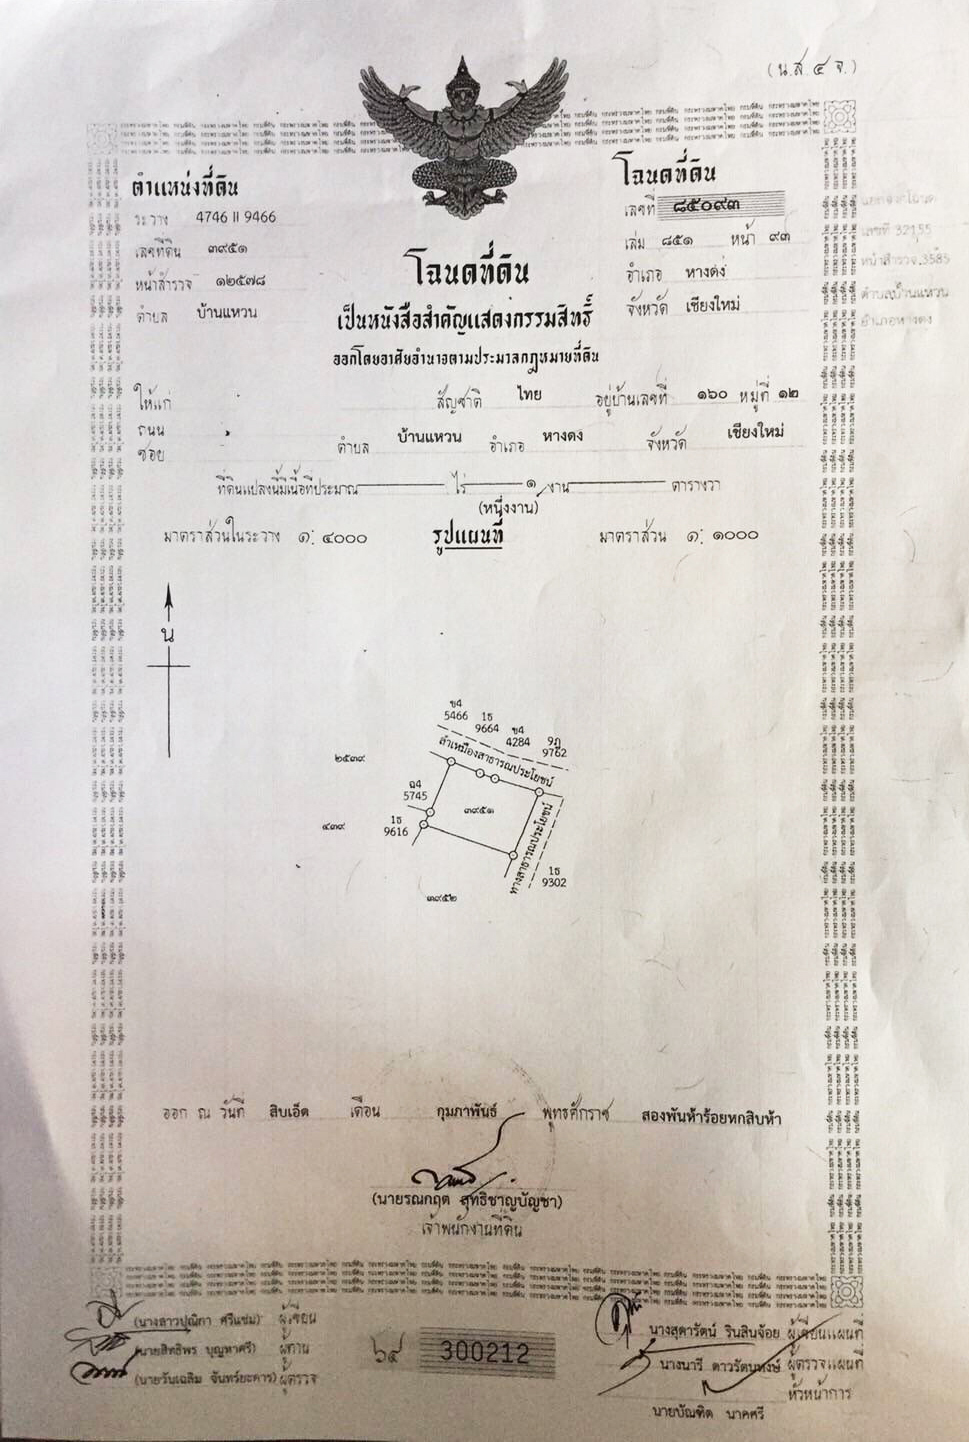 (น.ส. ๔ จ.)
ตำแหน่งที่ดิน
ระวาง 4746 II 9466
เลขที่ดิน ๓๙๕๑
หน้าสำรวจ ๑๒๕๗๘
ตำบล บ้านแหวน
โฉนดที่ดิน
เลขที่ ๘๕๐๙๓
เล่ม ๘๕๑ หน้า ๙๓
อำเภอ หางดง
จังหวัด เชียงใหม่
แยกจากโฉนด
เลขที่ 32155
หน้าสำรวจ 3585
ตำบลบ้านแหวน
อำเภอหางดง
โฉนดที่ดิน
เป็นหนังสือสำคัญแสดงกรรมสิทธิ์
ออกโดยอาศัยอำนาจตามประมวลกฎหมายที่ดิน
ให้แก่ สัญชาติ ไทย อยู่บ้านเลขที่ ๑๖๐ หมู่ที่ ๑๒
ถนน
ซอย ตำบล บ้านแหวน อำเภอ หางดง จังหวัด เชียงใหม่
ที่ดินแปลงนี้มีเนื้อที่ประมาณ ไร่ ๑ งาน ตารางวา
(หนึ่งงาน)
มาตราส่วนในระวาง ๑: ๔๐๐๐ รูปแผนที่ มาตราส่วน ๑: ๑๐๐๐
น
ข4
5466
1ธ
9664
ข4
4284
9ภู
9762
ลำเหมืองสาธารณประโยชน์
๒๕๓๙
ฉ4
5745
๓๙๕๑
1ธ
9616
๔๓๙
ทางสาธารณประโยชน์
1ธ
9302
๓๙๕๒
ออก ณ วันที่ สิบเอ็ด เดือน กุมภาพันธ์ พุทธศักราช สองพันห้าร้อยหกสิบห้า
(นายรณกฤต สุทธิชาญบัญชา)
เจ้าพนักงานที่ดิน
(นางสาวปุณิกา ศรีแช่ม) ผู้เขียน
(นายสิทธิพร บุญหาศรี) ผู้ทาน
(นายวันเฉลิม จันทร์ยะคาร) ผู้ตรวจ
๖๔ 300212
นางสุดารัตน์ รินสินจ้อย ผู้เขียนแผนที่
นางนารี ดาวรัตนหงษ์ ผู้ตรวจแผนที่
หัวหน้าการ
นายบัณฑิต นาคศรี